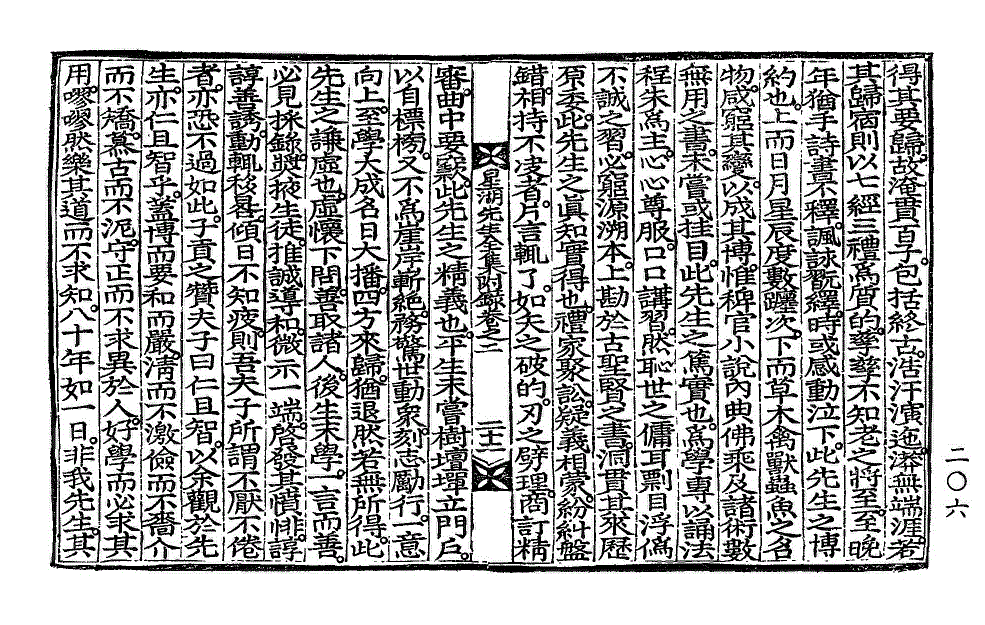 得其要歸。故淹貫百子。包括終古。浩汗演迤。漭無端涯。若
其歸宿則以七經三禮爲質的。孳孳不知老之將至。至晩
年猶手詩書不釋。諷詠翫繹。時或感動泣下。此先生之博
約也。上而日月星辰度數躔次。下而草木禽獸蟲魚之名
物。咸窮其變。以成其博。惟稗官小說內典佛乘及諸術數
無用之書。未嘗或挂目。此先生之篤實也。爲學專以誦法
程朱爲主。心心尊服。口口講習。然恥世之傭耳剽目浮僞
不誠之習。必窮源溯本。上勘於古聖賢之書。洞貫其來歷
原委。此先生之眞知實得也。禮家聚訟。疑義相蒙。紛糾盤
錯。相持不决者。片言輒了。如矢之破的。刃之劈理。商訂精
星湖先生全集附錄卷之二
二十二
審。曲中要竅。此先生之精義也。平生未嘗樹壇墠立門戶。
以自標榜。又不爲崖岸嶄絶。務驚世動衆。刻志勵行。一意
向上。至學大成名日大播。四方來歸。猶退然若無所得。此
先生之謙虛也。虛懷下問。善取諸人。後生末學。一言而善。
必見採錄。奬掖生徒。推誠導和。微示一端。啓發其憤悱。諄
諄善誘。動輒移晷。傾日不知疲。則吾夫子所謂不厭不倦
者。亦恐不過如此。子貢之贊夫子曰仁且智。以余觀於先
生。亦仁且智乎。蓋博而要和而嚴。淸而不激。儉而不嗇。介
而不矯。慕古而不泥。守正而不求異於人。好學而必求其
用。嘐嘐然樂其道而不求知。八十年如一日。非我先生。其
二〇六